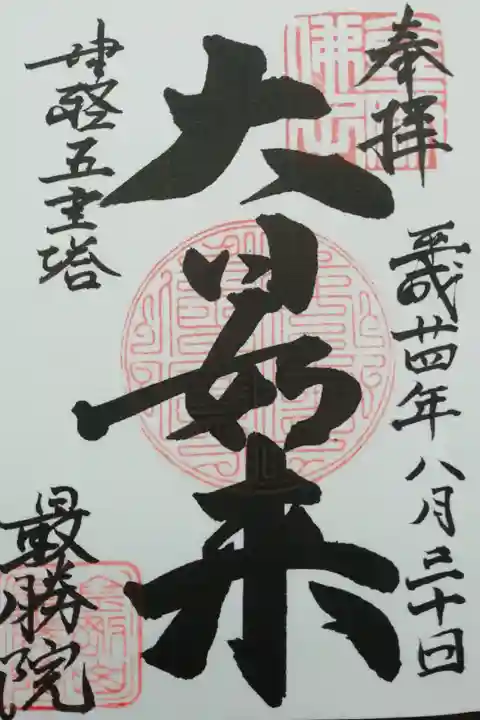 奉拝
平成廿四年八月三十日
大日如来
五重塔
最勝院